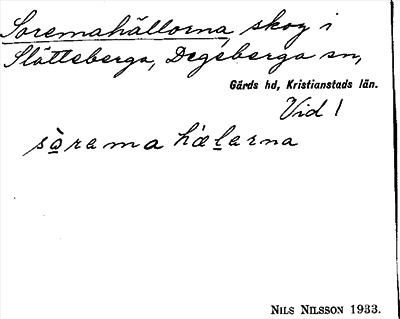 Soremahällorna, skog i
Slätteberga, Degeberga sn,
Gärds hd, Kristianstads län.
Vid 1
sὰrema hælarna
NILS NILSSON 1933.